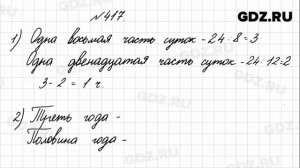 GDZ.RU
№417
1) Одна восьмая часть суток - 24 : 8 = 3
Одна двенадцатая часть суток - 24 : 12 - 2
3 - 2 = 1 ч.
2) Треть года -
Половина года -